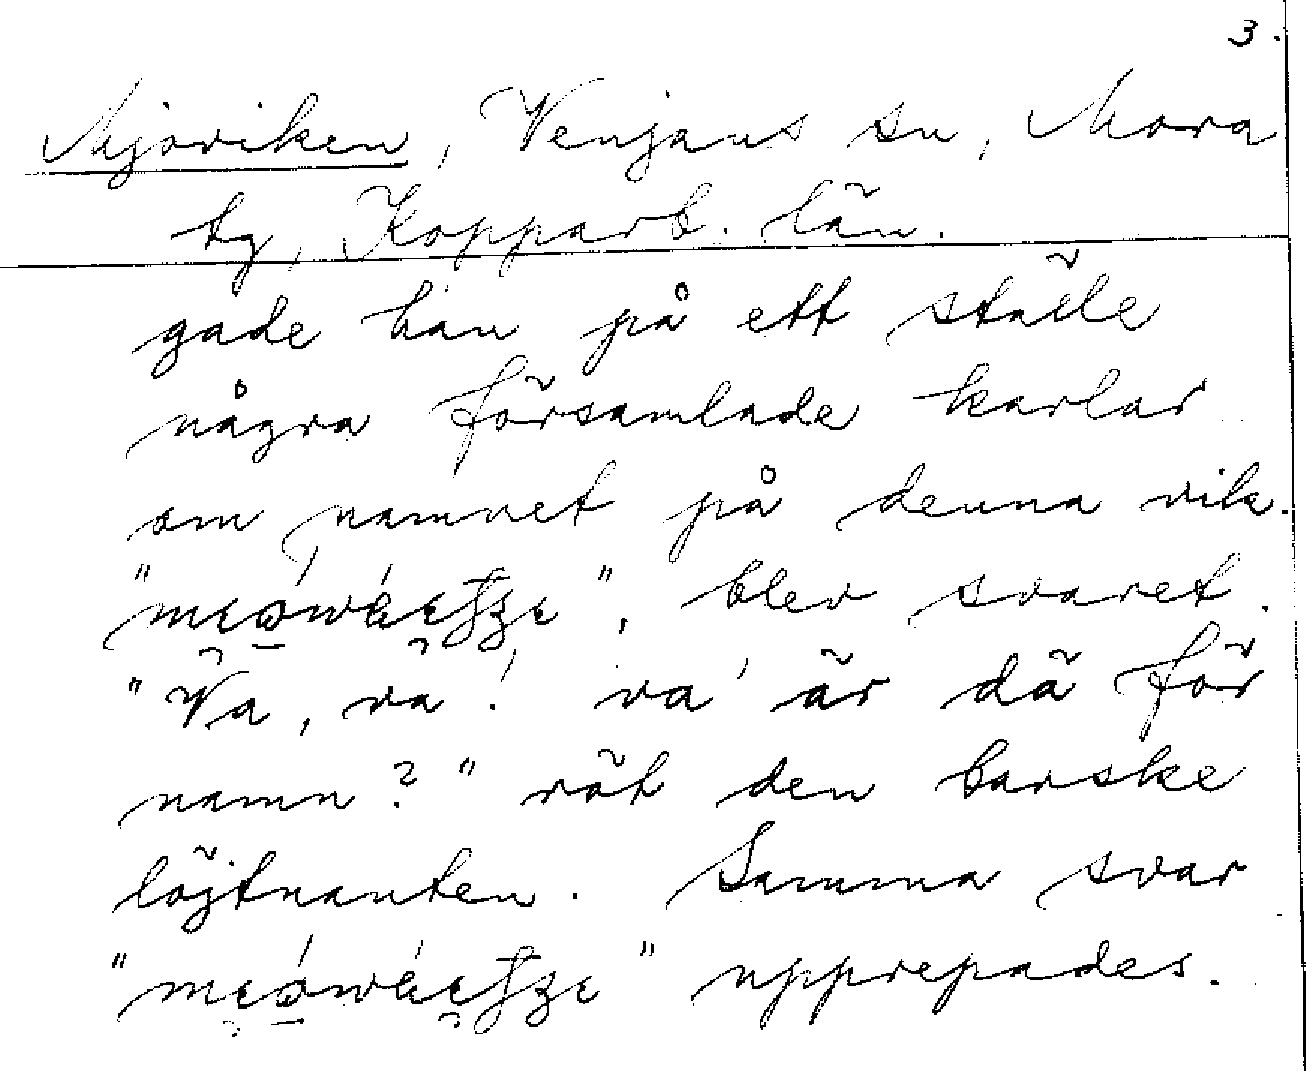 3.
Mjoviken, Venjans sn, Mora
tg, Kopparb. län.
gade han på ett ställe
några församlade karlar
om namnet på denna vik.
" ", blev svaret.
"Vä, vä! va' är dä för
namn?" röt den barske
löjtnanten. Samma svar
" " upprepades.